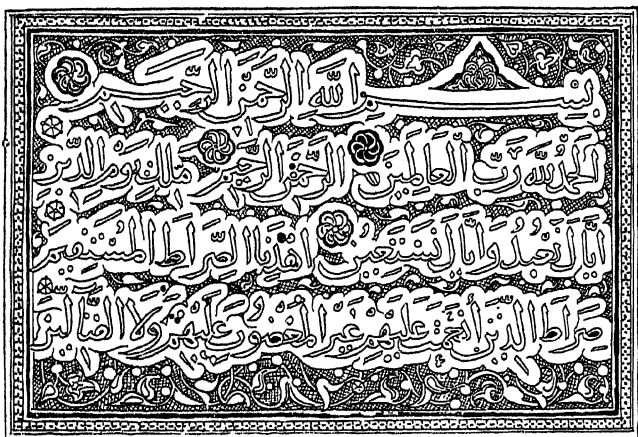 بسم الله الرحمن الرحيم
الحمد لله رب العالمين الرحمن الرحيم ملك يوم الدين
اياك نعبد واياك نستعين اهدنا الصراط المستقيم
صراط الذين أنعمت عليهم غير المغضوب عليهم ولا الضآلين